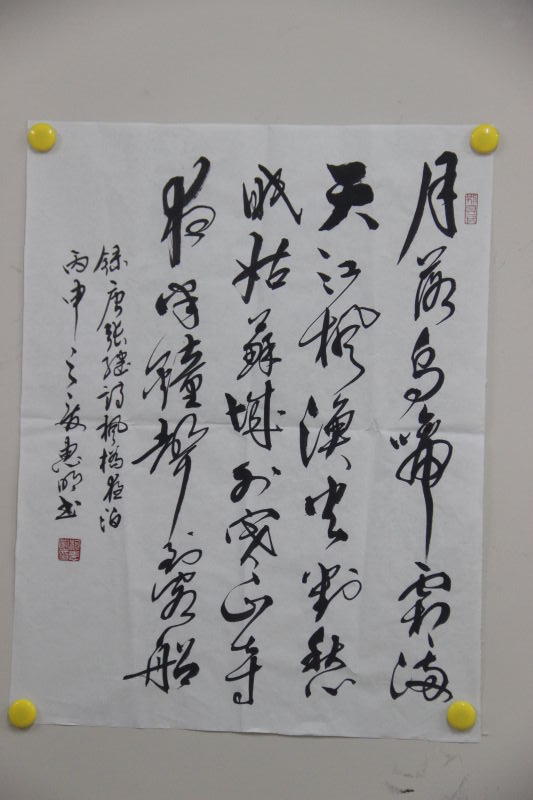 月落烏啼霜滿
天江楓漁火對愁
眠姑蘇城外寒山寺
夜半鐘聲到客船
錄唐張繼詩楓橋夜泊
丙申之夏惠明書